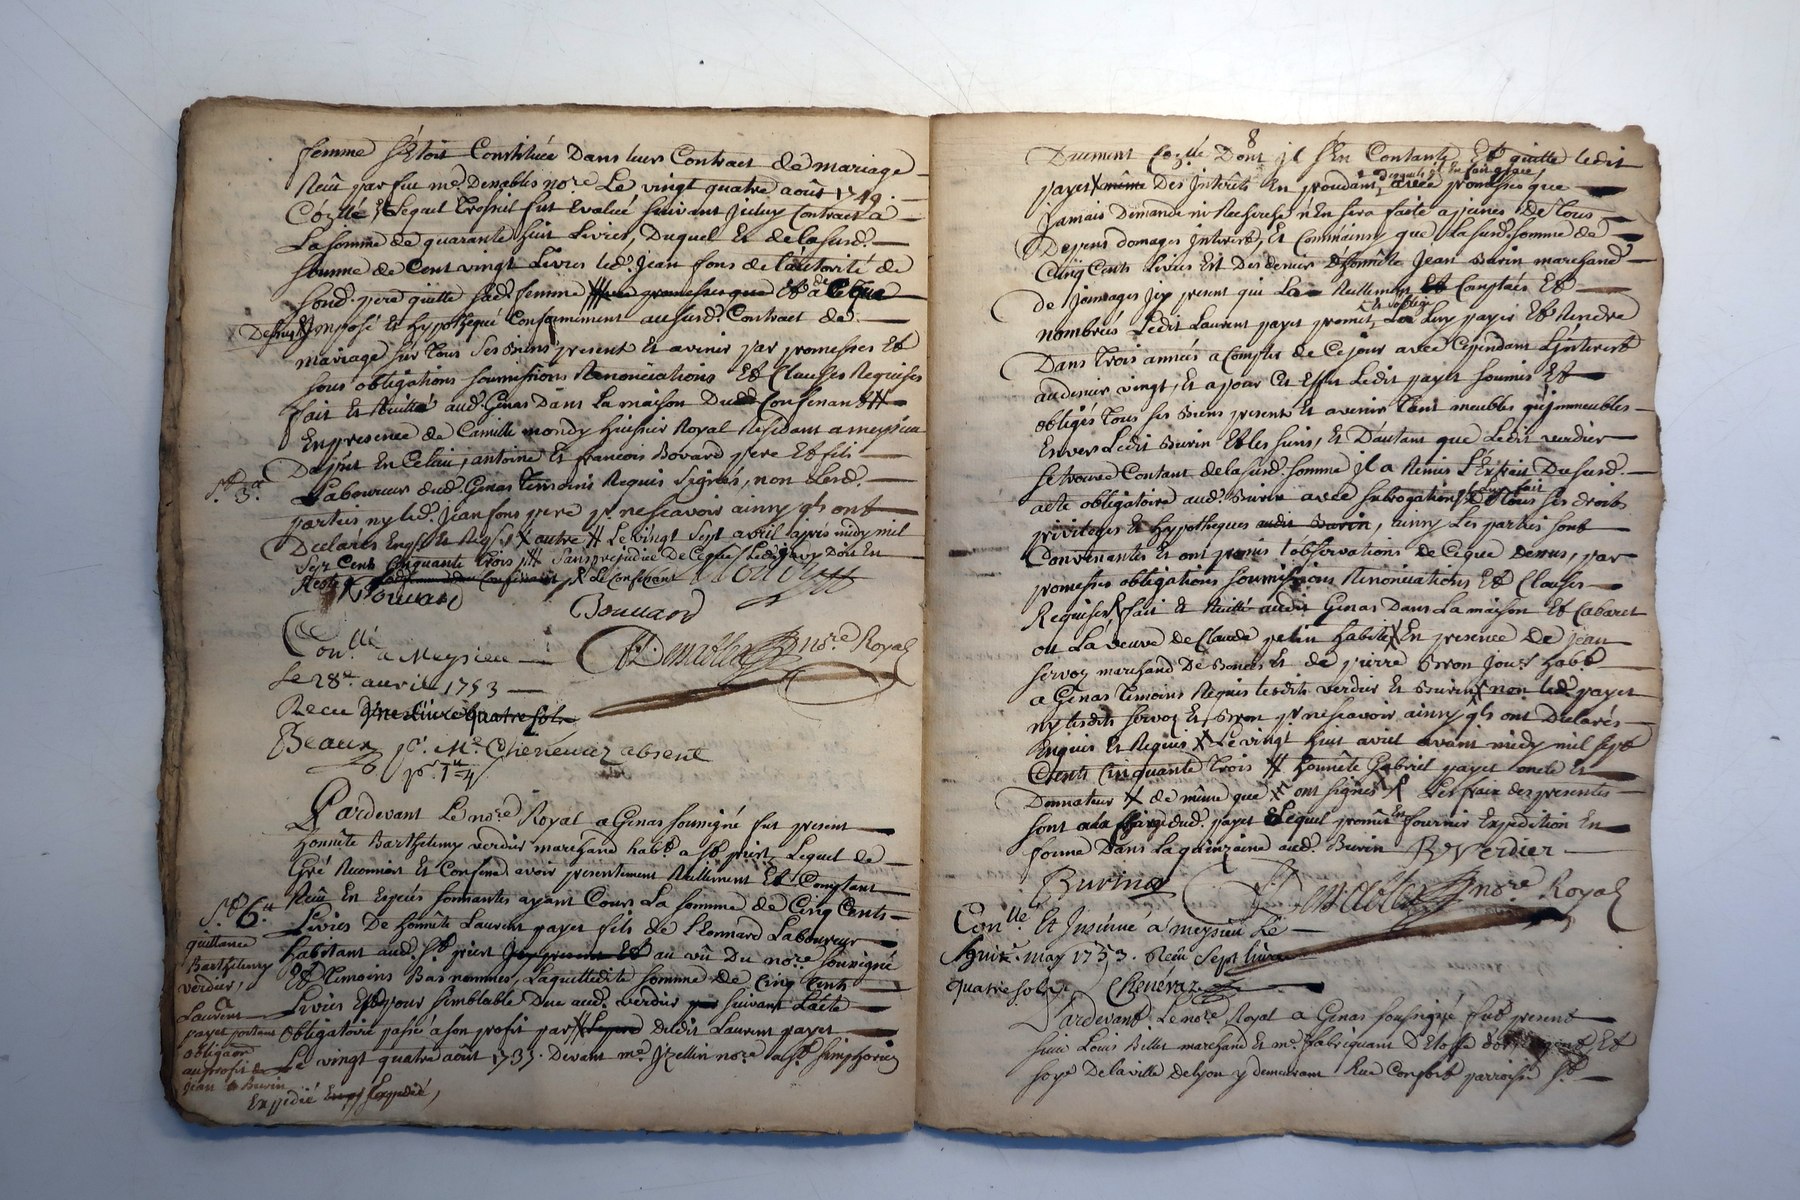 femme s'étoit Constituée Dans leurs Contract de mariage
Reçû par feu me. Demables nore. Le vingt quatre août 1749.
Lequel Trossel fut Evalué suivant Contract a
La somme de quarante huit Livres, Duquel Et de la susd.
somme de Cent vingt Livres led. Jean fons de l'autorité de
sond. pere quitte sad. femme promesses que Et de Ce que
Dessus imposé Et hypothequé Conformement au susd. Contract de
mariage sur Tous ses Biens present Et avenir par promesses Et
sous obligations soumissions Renonciations Et Clauses Requises
fait Et Recité aud. Genas Dans La maison Dud. Confenant
En presence de Camille mondy huissier Royal Residant a meysieu
Antoine Et francois Bovard pere Et fils
Laboureurs dud. Genas Temoins Requis signés, non Lesd.
parties ny led. Jean fons pere pr. ne scavoir ainsy qls ont
Declarés Enqs. Et Reqs. autre Le vingt sept avril après midy mil
sept Cent Cinquante Trois, sans prejudice De Ce que
Le Confenant
Bouvard
Bouvard
Demables nore. Royal
Conllé. a Meysieu
Le 28e. avril 1753
Receu une livre quatre sols
Beaux pr. Mr. Chenevaz absent
Pardevant Le nore. Royal a Genas soussigné fut present
honnête Barthelemy verdier marchand habt. a st. priest, Lequel de
Gré Reconnoit Et Confesse avoir presentement Réellement Et Comptant
Reçû En Espèces sonnantes ayant Cours La somme de Cinq Cents
Livres De honnête Laurent payet fils de Leonnard Laboureur
habitant aud. st. priest au vû Du nore. soussigné
Et Temoins Bas nommés, Laquelledite somme de Cinq Cents
Livres Est pour semblable Due aud. verdier suivant L'acte
obligatoire passé a son profit par dudit Laurent payet
Le vingt quatre août 1737. Devant me. nore. a st. simphorien
quittance
Barthelemy
verdier,
a
Laurent
payet portant
obligaon
au profit de
Jean Burin
Expédié
8
Duement Dont il s'En Contante Et quitte ledit
payet même Des Interêts En procedant, avec promesses que
jamais Demande ni Recherche n'En sera faite a peines De tous
Depens domages interest, Et Comme ainsy que La susd. somme de
Cinq Cents Livres Est Des denier d'honnête Jean Burin marchand
de Jonnages Icy present qui La Réellement Comptés Et
nombrés Ledit Laurent payet promet, Luy payer Et Rendre
Dans Trois années a Compter de Ce jour avec Cependant L'interest
au denier vingt, Et a pour Cet Effet Ledit payet soumis Et
obligés Tous ses Biens present Et avenir Tant meubles qu'immeubles
Envers Ledit Burin Et les siens, Et D'autant que Ledit verdier
se trouve Contant de la susd. somme il a Remis L'Extrait Du susd.
acte obligatoire aud. Burin avec subrogation De tous ses droits
privileges Et hypotheques audit Burin, ainsy Les parties sont
Convenantes Et ont promis l'observations de Ce que dessus, par
promesses obligations soumissions Renonciations Et Clauses
Requises, fait Et Recité audit Genas Dans La maison Et Cabaret
ou La veuve de Claude petin habite En presence De jean
servoz marchand De Et de pierre Bron Jour. habt.
a Genas Temoins Requis lesdits verdier Et Burin non led. payet
ny lesdits servoz Et Bron pr. ne scavoir ainsy qls ont Declarés
Enquis Et Requis Le vingt huit avril avant midy mil sept
Cents Cinquante Trois honnête Gabriel payet oncle Et
Donnateur de même que ont signés Les fraix des presentes
sont a la Charge dud. payet Lequel promet En fournir Expedition En
forme Dans La quinzaine aud. Burin B. Verdier
Burin
Demables nore. Royal
Conllé. Et Insinué à meysieu Le
huit may 1753. Reçu sept livres
quatre sols. Chenevaz
Pardevant Le nore. Royal a Genas soussigné fut present
sieur Louis Billet marchand Et me. fabriquant D'Etoffe Et
soye De la ville de lyon y demeurant Rue Confort parroisse st.